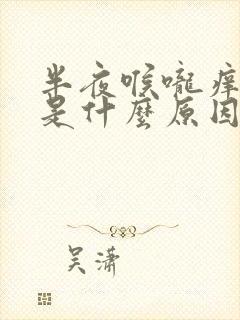 半夜喉嚨痒
是什麼原因
吴潇